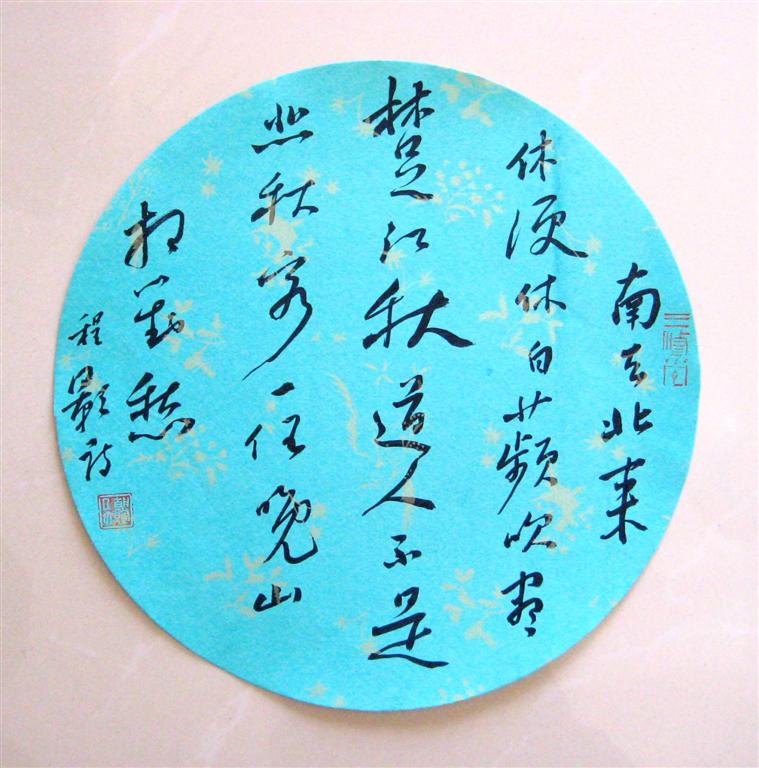 南去北来
休便休白蘋吹盡
楚江秋道人不是
悲秋客一任晚山
相對愁
程顥詩